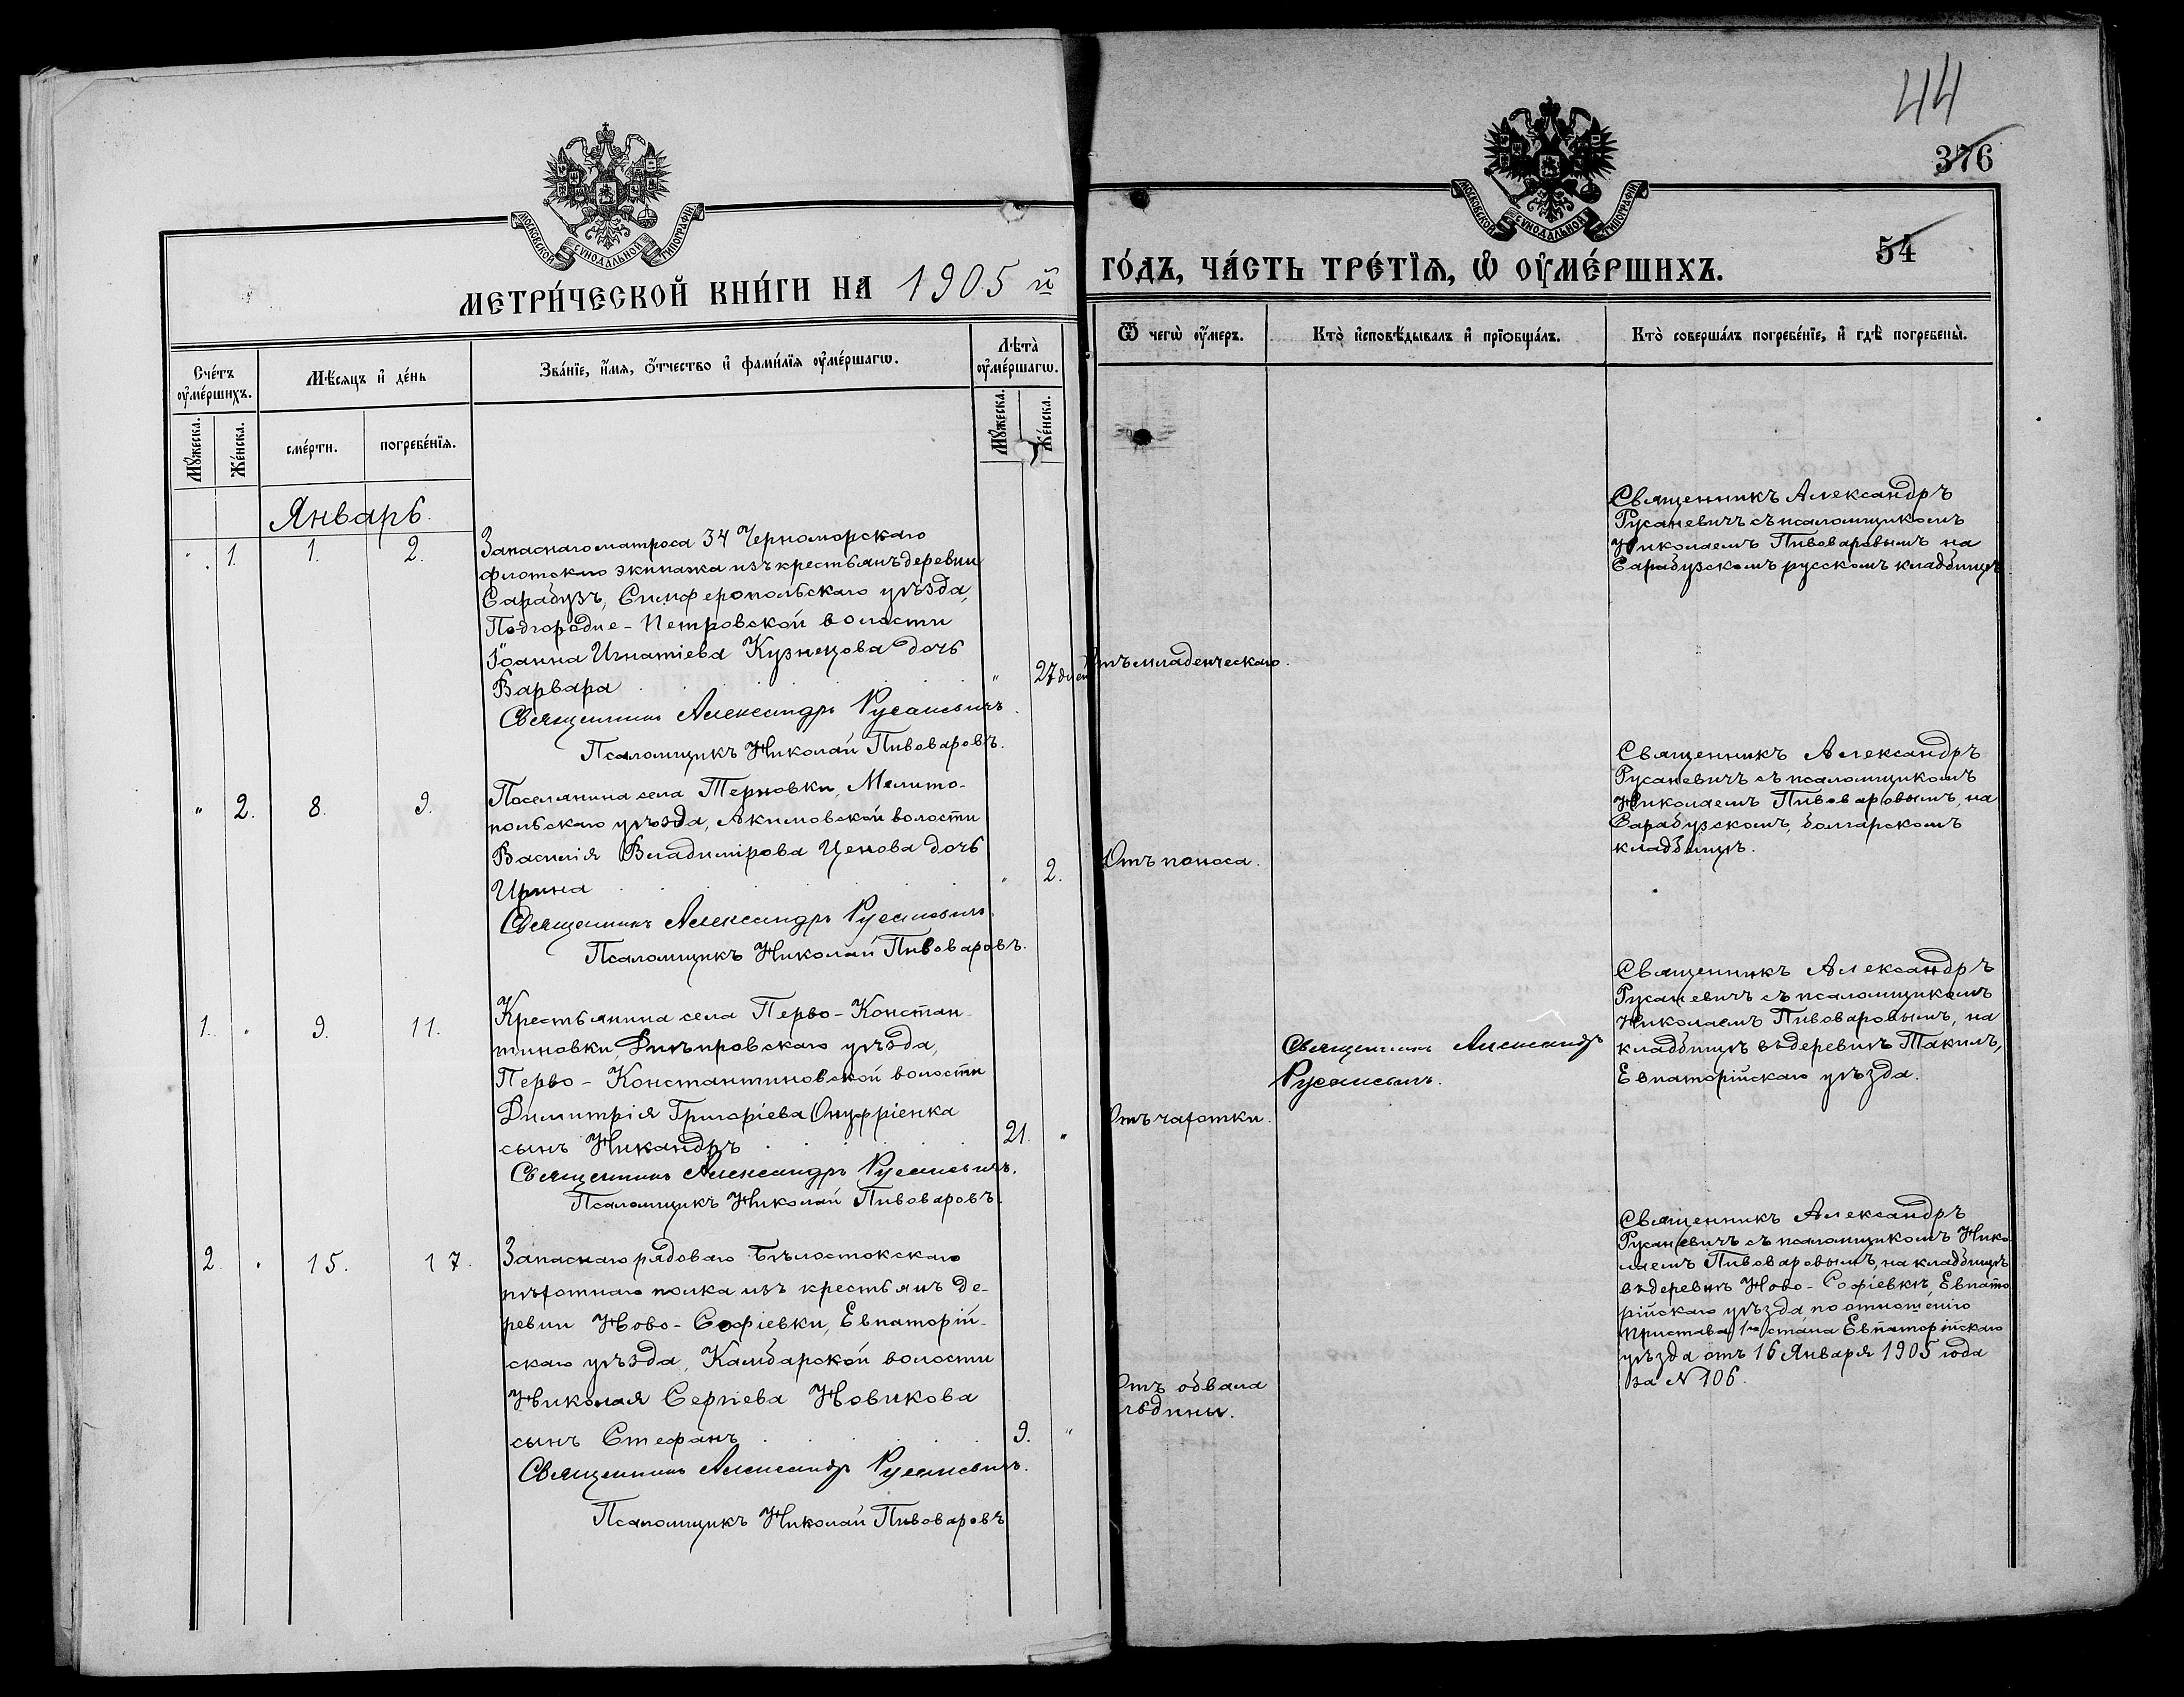 44
376
54
МОСКОВСКОЙ СѴНОДАЛЬНОЙ ТИПОГРАФІИ
МОСКОВСКОЙ СѴНОДАЛЬНОЙ ТИПОГРАФІИ
МЕТРИ́ЧЕСКОЙ КНИ́ГИ НА 1905 й
ГО́ДЪ, ЧА́СТЬ ТРЕ́ТЇѦ, Ѡ҆ ОУ҆МЕ́РШИХЪ.
Сче́тъ
оу҆ме́ршихъ.
Мѣ́сяцъ и҆ де́нь
Зва́нїе, и҆́мя, ѻ҆́тчество и҆ фами́лїя оу҆ме́ршагѡ.
Лѣта̀
оу҆ме́ршагѡ.
Ѿ чегѡ̀ оу҆́меръ.
Кто̀ и҆сповѣ́дывалъ и҆ прїѡбща́лъ.
Кто̀ соверша́лъ погребе́нїе, и҆ гдѣ̀ погребены̀.
Мꙋ́жеска.
Же́нска.
сме́рти.
погребе́нїя.
Мꙋ́жеска.
Же́нска.
Январь.
" 1. 1. 2.
Запаснаго матроса 34 Черноморскаго
флотскаго экипажа изъ крестьянъ деревни
Сарабузъ, Симферопольскаго уѣзда,
Подгородне-Петровской волости
Іоанна Игнатіева Кузнецова дочь
Варвара . . . . . " 27 дней
Священникъ Александръ Русаневичъ.
Псаломщикъ Николай Пивоваровъ.
Отъ младенческаго.
Священникъ Александръ
Русаневичъ съ псаломщикомъ
Николаемъ Пивоваровымъ на
Сарабузскомъ русскомъ кладбищѣ
" 2. 8. 9.
Поселянина села Терновки, Мелито-
польскаго уѣзда, Акимовской волости
Василія Владимірова Ценова дочь
Ирина . . . . . " 2.
Священникъ Александръ Русаневичъ.
Псаломщикъ Николай Пивоваровъ.
Отъ поноса.
Священникъ Александръ
Русаневичъ съ псаломщикомъ
Николаемъ Пивоваровымъ, на
Сарабузскомъ, болгарскомъ
кладбищѣ.
1. " 9. 11.
Крестьянина села Перво-Констан-
тиновки, Днѣпровскаго уѣзда,
Перво-Константиновской волости
Димитрія Григоріева Онуфріенка
сынъ Никандръ . . . . 21. "
Священникъ Александръ Русаневичъ.
Псаломщикъ Николай Пивоваровъ.
Отъ чахотки.
Священникъ Александръ
Русаневичъ.
Священникъ Александръ
Русаневичъ съ псаломщикомъ
Николаемъ Пивоваровымъ, на
кладбищѣ въ деревнѣ Такилъ,
Евпаторійскаго уѣзда.
2. " 15. 17.
Запаснаго рядоваго Бѣлостокскаго
пѣхотнаго полка изъ крестьянъ де-
ревни Ново-Софіевки, Евпаторій-
скаго уѣзда, Камбарской волости
Николая Сергіева Новикова
сынъ Стефанъ . . . . 9. "
Священникъ Александръ Русаневичъ.
Псаломщикъ Николай Пивоваровъ
Отъ обвала
льдины.
Священникъ Александръ
Русаневичъ съ псаломщикомъ Нико
лаемъ Пивоваровымъ, на кладбищѣ
въ деревнѣ Ново-Софіевкѣ, Евпато
рійскаго уѣзда по отношенію
Пристава 1го стана Евпаторійскаго
уѣзда отъ 16 Января 1905 года
за N 106.